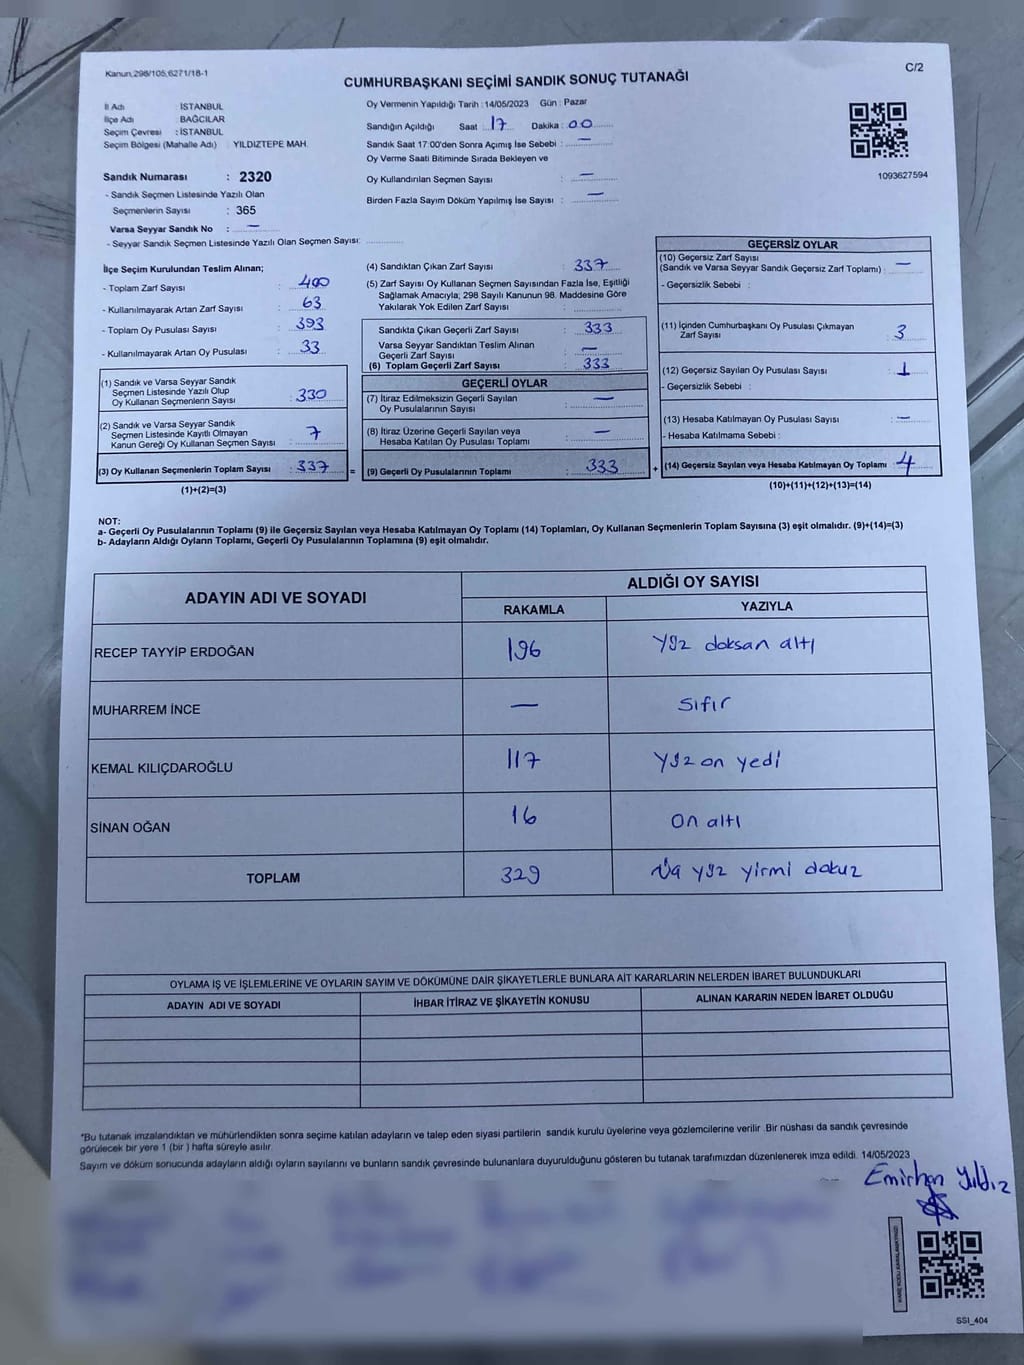 Kanun.298/105,6271/18-1
C/2
CUMHURBAŞKANI SEÇİMİ SANDIK SONUÇ TUTANAĞI
İl Adı : İSTANBUL
İlçe Adı : BAĞCILAR
Seçim Çevresi : İSTANBUL
Seçim Bölgesi (Mahalle Adı) : YILDIZTEPE MAH.
Sandık Numarası : 2320
- Sandık Seçmen Listesinde Yazılı Olan
Seçmenlerin Sayısı : 365
Varsa Seyyar Sandık No : —
- Seyyar Sandık Seçmen Listesinde Yazılı Olan Seçmen Sayısı:
Oy Vermenin Yapıldığı Tarih : 14/05/2023 Gün : Pazar
Sandığın Açıldığı Saat : 17 Dakika : 00
Sandık Saat 17:00'den Sonra Açımış İse Sebebi : —
Oy Verme Saati Bitiminde Sırada Bekleyen ve
Oy Kullandırılan Seçmen Sayısı : —
Birden Fazla Sayım Döküm Yapılmış İse Sayısı : —
1093627594
İlçe Seçim Kurulundan Teslim Alınan;
- Toplam Zarf Sayısı : 400
- Kullanılmayarak Artan Zarf Sayısı : 63
- Toplam Oy Pusulası Sayısı : 393
- Kullanılmayarak Artan Oy Pusulası : 33
(1) Sandık ve Varsa Seyyar Sandık
Seçmen Listesinde Yazılı Olup
Oy Kullanan Seçmenlerin Sayısı : 330
(2) Sandık ve Varsa Seyyar Sandık
Seçmen Listesinde Kayıtlı Olmayan
Kanun Gereği Oy Kullanan Seçmen Sayısı : 7
(3) Oy Kullanan Seçmenlerin Toplam Sayısı : 337 =
(1)+(2)=(3)
(4) Sandıktan Çıkan Zarf Sayısı : 337
(5) Zarf Sayısı Oy Kullanan Seçmen Sayısından Fazla İse, Eşitliği
Sağlamak Amacıyla; 298 Sayılı Kanunun 98. Maddesine Göre
Yakılarak Yok Edilen Zarf Sayısı :
Sandıkta Çıkan Geçerli Zarf Sayısı : 333
Varsa Seyyar Sandıktan Teslim Alınan
Geçerli Zarf Sayısı : —
(6) Toplam Geçerli Zarf Sayısı : 333
GEÇERLİ OYLAR
(7) İtiraz Edilmeksizin Geçerli Sayılan
Oy Pusulalarının Sayısı : —
(8) İtiraz Üzerine Geçerli Sayılan veya
Hesaba Katılan Oy Pusulası Toplamı : —
(9) Geçerli Oy Pusulalarının Toplamı : 333 +
GEÇERSİZ OYLAR
(10) Geçersiz Zarf Sayısı
(Sandık ve Varsa Seyyar Sandık Geçersiz Zarf Toplamı) : —
- Geçersizlik Sebebi :
(11) İçinden Cumhurbaşkanı Oy Pusulası Çıkmayan
Zarf Sayısı : 3
(12) Geçersiz Sayılan Oy Pusulası Sayısı : 1
- Geçersizlik Sebebi :
(13) Hesaba Katılmayan Oy Pusulası Sayısı : —
- Hesaba Katılmama Sebebi :
(14) Geçersiz Sayılan veya Hesaba Katılmayan Oy Toplamı : 4
(10)+(11)+(12)+(13)=(14)
NOT:
a- Geçerli Oy Pusulalarının Toplamı (9) ile Geçersiz Sayılan veya Hesaba Katılmayan Oy Toplamı (14) Toplamları, Oy Kullanan Seçmenlerin Toplam Sayısına (3) eşit olmalıdır. (9)+(14)=(3)
b- Adayların Aldığı Oyların Toplamı, Geçerli Oy Pusulalarının Toplamına (9) eşit olmalıdır.
ADAYIN ADI VE SOYADI
ALDIĞI OY SAYISI
RAKAMLA YAZIYLA
RECEP TAYYİP ERDOĞAN 196 Yüz doksan altı
MUHARREM İNCE — Sıfır
KEMAL KILIÇDAROĞLU 117 Yüz on yedi
SİNAN OĞAN 16 On altı
TOPLAM 329 Üç yüz yirmi dokuz
OYLAMA İŞ VE İŞLEMLERİNE VE OYLARIN SAYIM VE DÖKÜMÜNE DAİR ŞİKAYETLERLE BUNLARA AİT KARARLARIN NELERDEN İBARET BULUNDUKLARI
ADAYIN ADI VE SOYADI İHBAR İTİRAZ VE ŞİKAYETİN KONUSU ALINAN KARARIN NEDEN İBARET OLDUĞU
*Bu tutanak imzalandıktan ve mühürlendikten sonra seçime katılan adayların ve talep eden siyasi partilerin sandık kurulu üyelerine veya gözlemcilerine verilir .Bir nüshası da sandık çevresinde
görülecek bir yere 1 (bir ) hafta süreyle asılır.
Sayım ve döküm sonucunda adayların aldığı oyların sayılarını ve bunların sandık çevresinde bulunanlara duyurulduğunu gösteren bu tutanak tarafımızdan düzenlenerek imza edildi. 14/05/2023
Emirhan Yıldız
SSI_404